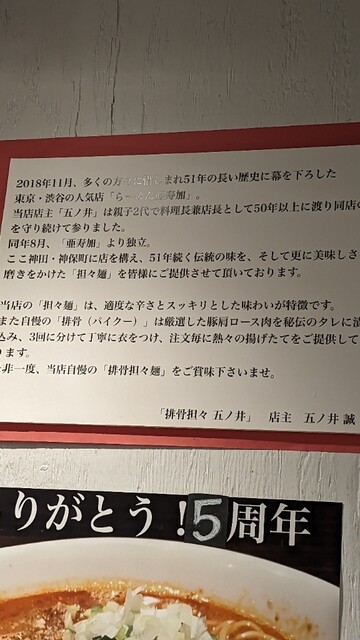 2018年11月、多くの方に惜しまれ51年の長い歴史に幕を下ろした
東京・渋谷の人気店「らーめん亜寿加」。
当店店主「五ノ井」は親子2代で料理長兼店長として50年以上に渡り同店の
を守り続けて参りました。
同年8月、「亜寿加」より独立。
ここ神田・神保町に店を構え、51年続く伝統の味を、そして更に美味しさ
磨きをかけた「担々麺」を皆様にご提供させて頂いております。
当店の「担々麺」は、適度な辛さとスッキリとした味わいが特徴です。
また自慢の「排骨（パイクー）」は厳選した豚肩ロース肉を秘伝のタレに漬
込み、3回に分けて丁寧に衣をつけ、注文毎に熱々の揚げたてをご提供して
ります。
非一度、当店自慢の「排骨担々麺」をご賞味下さいませ。
「排骨担々 五ノ井」 店主 五ノ井 誠
りがとう!5周年